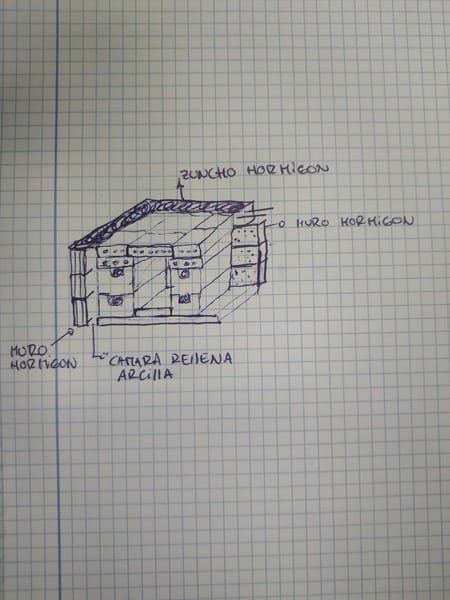 ZUNCHO HORMIGON
MURO HORMIGON
MURO
HORMIGON
CAMARA RELLENA
ARCILLA